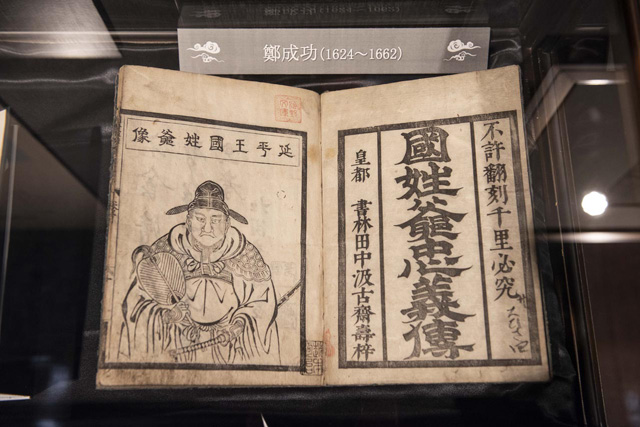 鄭成功(1624～1662)
不許翻刻千里必究
國姓爺忠義傳
皇都 書林田中汲古齋壽梓
延平王國姓爺像